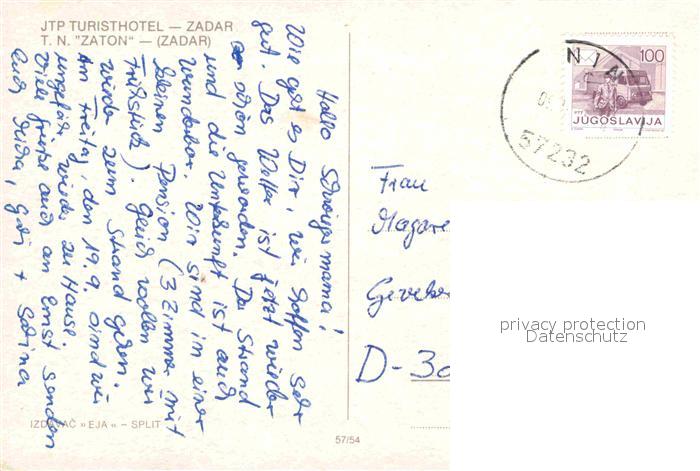 JTP TURISTHOTEL — ZADAR
T. N. "ZATON" — (ZADAR)
Hallo Schwiegermama!
Wie geht es Dir, wir hoffen sehr
gut. Das Wetter ist jetzt wieder
schön geworden. Der Strand
und die Unterkunft ist auch
wunderbar. Wir sind in einer
kleinen Pension (3 Zimmer mit
Frühstück). Gleich wollen wir
wieder zum Strand gehen.
Am Freitag, den 19.9. sind wir
ungefähr wieder zu Hause.
Viele Grüße auch an Ernst senden
auch Gabi + Sabrina
IZDAVAČ »EJA« – SPLIT
57/54
NIN
57232
100
PTT
JUGOSLAVIJA
Frau
Magare
Geveke
D-30
privacy protection
Datenschutz